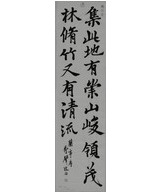 集此地有崇山峻領茂
林脩竹又有清流